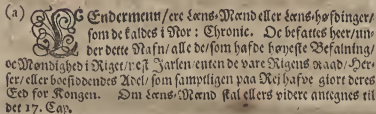 (a) LEndermenn/ere Læns-Mænd eller Læns-høfdinger/
som de kaldes i Nor: Chronic. Oc befattes heer/un-
der dette Nafn/ alle de/som hafde høyeste Befalning/
oc Møndighed i Riget/nest Jarlen/enten de vare Rigens Raad/Her-
ser/eller boesiddendes Adel/som samptligen paa Rej hafve giort deres
Eed for Kongen. Om Læns-Mænd skal ellers videre antegnes til
det 17. Cap.